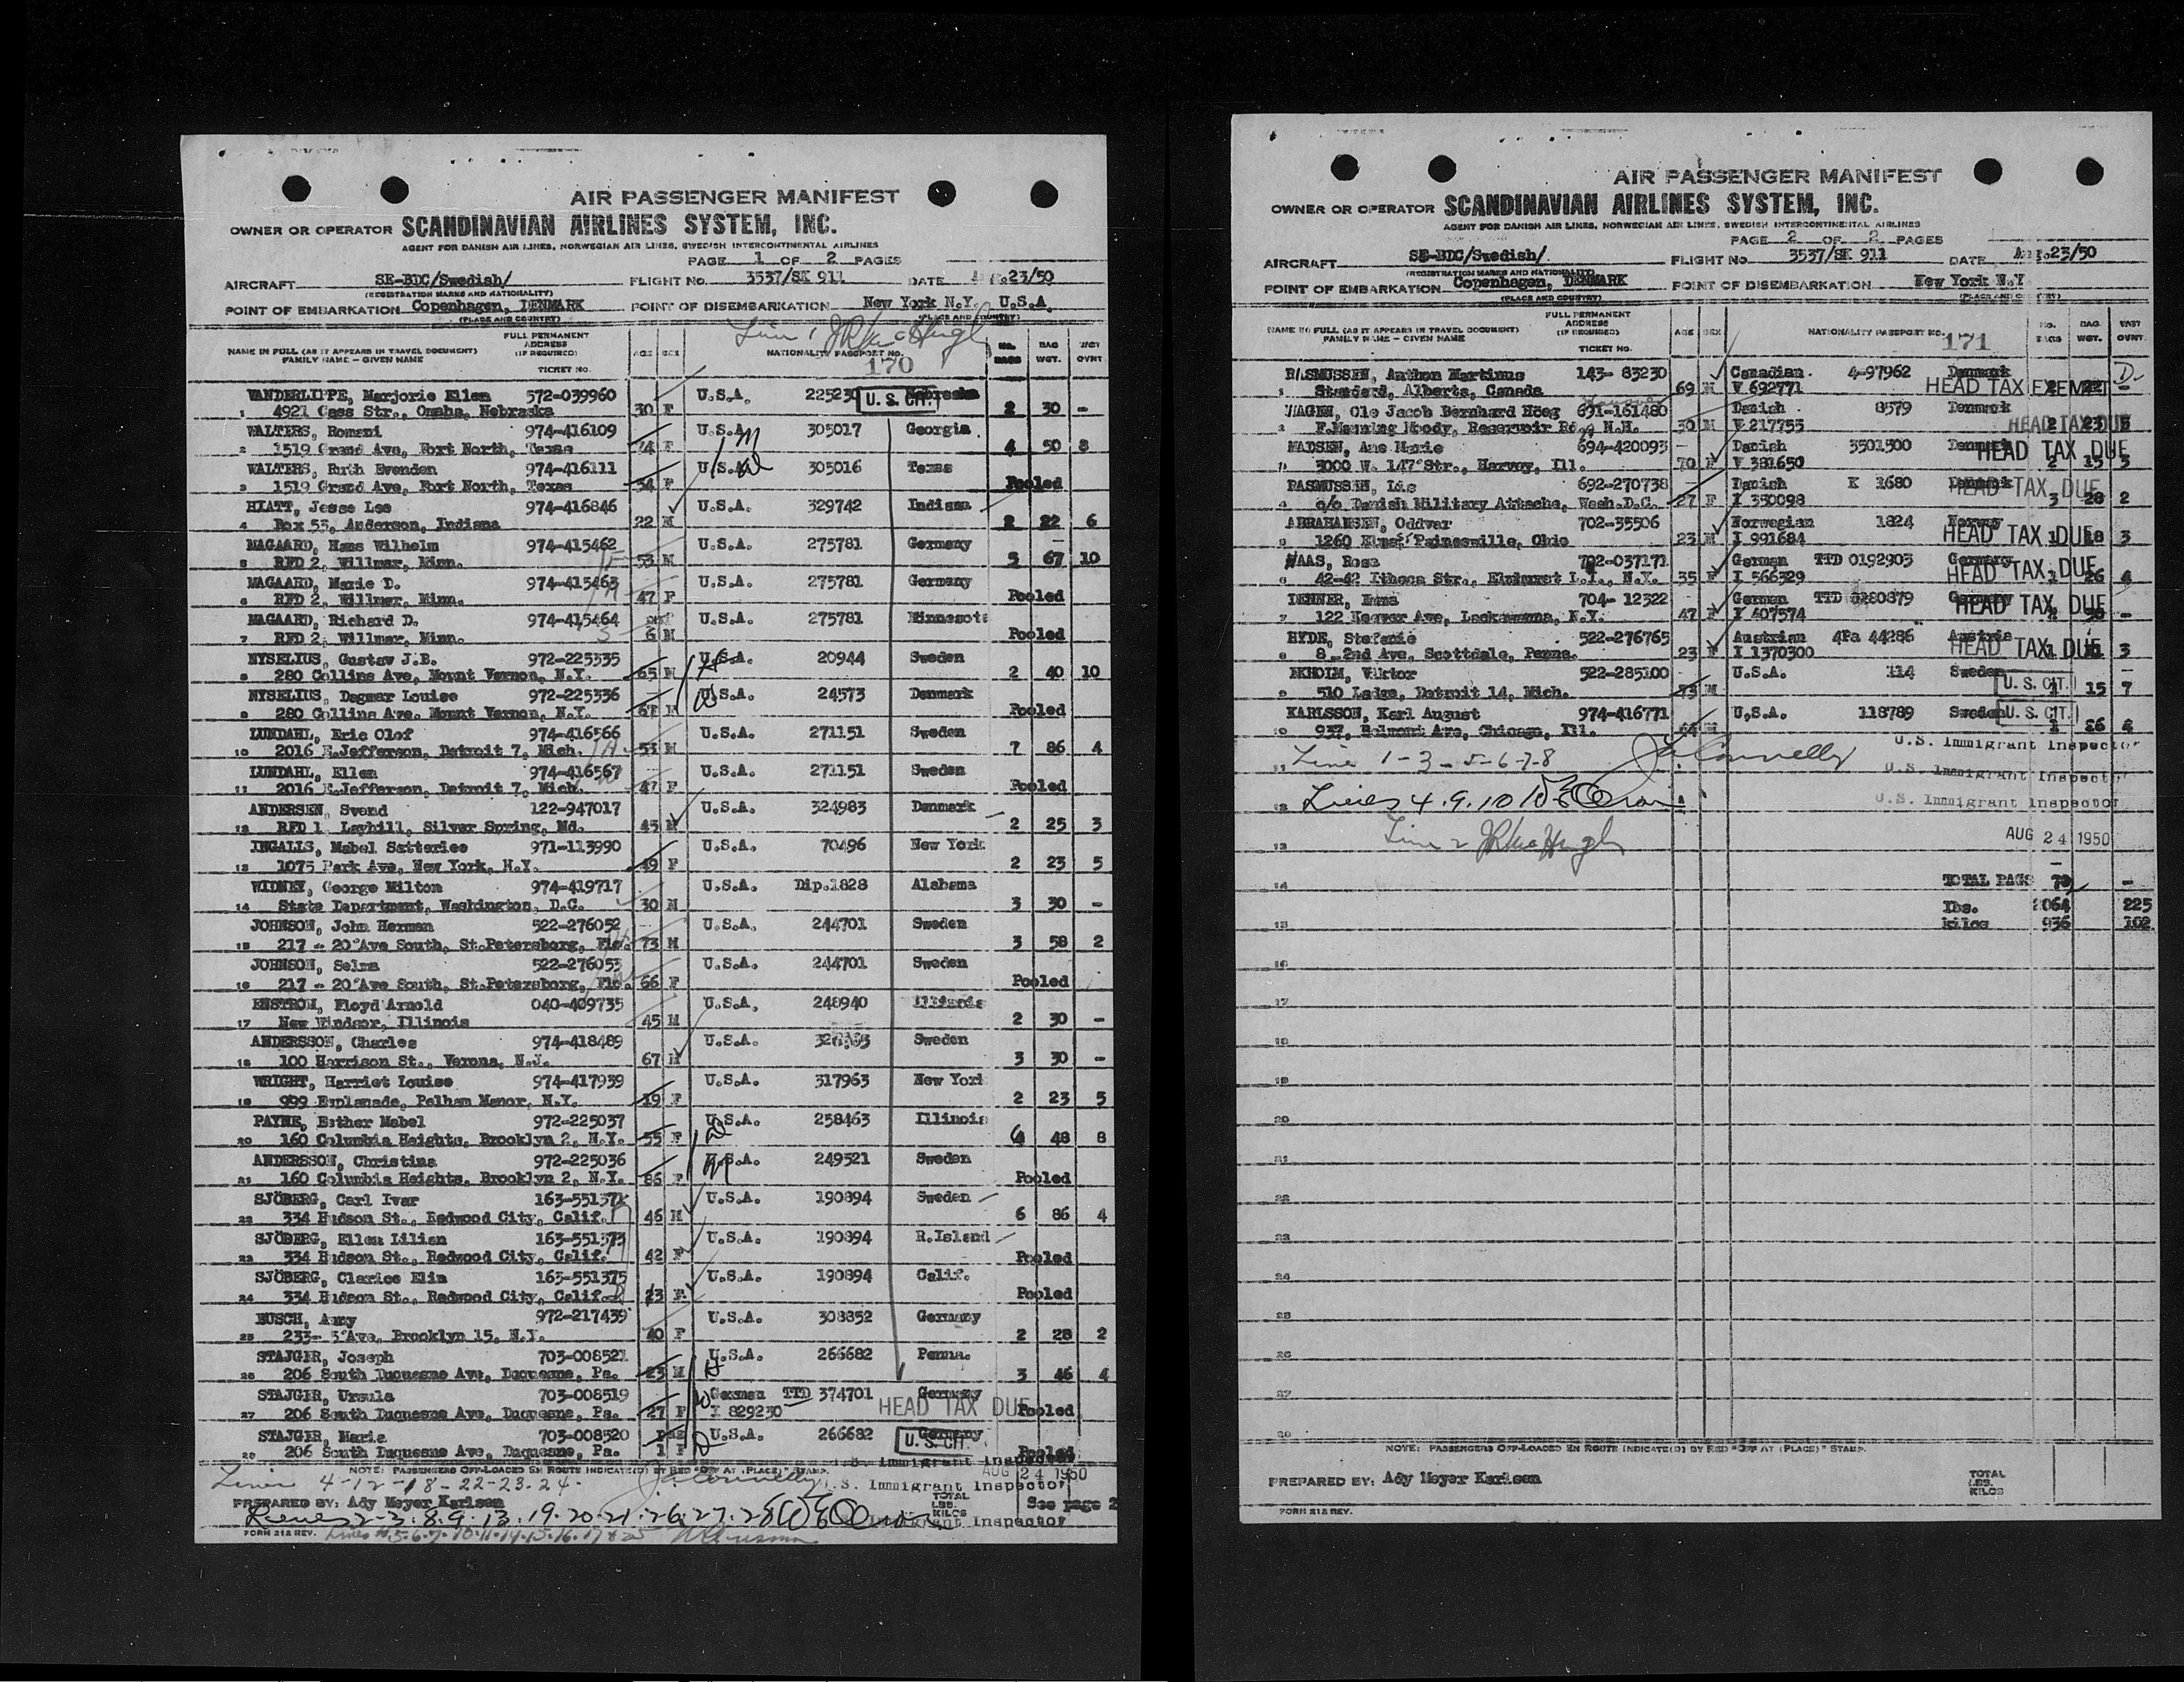 AIR PASSENGER MANIFEST
OWNER OR OPERATOR SCANDINAVIAN AIRLINES SYSTEM, INC.
AGENT FOR DANISH AIR LINES, NORWEGIAN AIR LINES, SWEDISH INTERCONTINENTAL AIRLINES
PAGE 1 OF 2 PAGES
AIRCRAFT SE-BDC/Swedish/ FLIGHT No. 3537/SK 911 DATE Aug.23/50
(REGISTRATION MARKS AND NATIONALITY)
POINT OF EMBARKATION Copenhagen, DENMARK POINT OF DISEMBARKATION New York N.Y. U.S.A.
(PLACE AND COUNTRY) (PLACE AND COUNTRY)
NAME IN FULL (AS IT APPEARS IN TRAVEL DOCUMENT) FAMILY NAME – GIVEN NAME FULL PERMANENT ADDRESS (IF REQUIRED) TICKET NO. AGE SEX NATIONALITY PASSPORT NO. NO. BAGS BAG WGT. WGT OVNT.
170
VANDERLIPPE, Marjorie Ellen 572-039960 U.S.A. 225230 Nebraska
U. S. CIT.
1 4921 Cass Str., Omaha, Nebraska 30 F 2 30 -
WALTERS, Romani 974-416109 U.S.A. 305017 Georgia
2 1519 Grand Ave, Fort North, Texas 74 F 4 50 8
WALTERS, Ruth Evenden 974-416111 U.S.A. 305016 Texas
3 1519 Grand Ave, Fort North, Texas 54 F Pooled
HIATT, Jesse Lee 974-416846 U.S.A. 329742 Indiana
4 Box 53, Anderson, Indiana 22 M 2 22 6
MAGAARD, Hans Wilhelm 974-415462 U.S.A. 275781 Germany
5 RFD 2, Willmar, Minn. 53 M 5 67 10
MAGAARD, Marie D. 974-415463 U.S.A. 275781 Germany
6 RFD 2, Willmar, Minn. 47 F Pooled
MAGAARD, Richard D. 974-415464 U.S.A. 275781 Minnesota
7 RFD 2, Willmar, Minn. 6 M Pooled
NYSELIUS, Gustav J.B. 972-225335 U.S.A. 20944 Sweden
8 280 Collins Ave, Mount Vernon, N.Y. 65 M 2 40 10
NYSELIUS, Dagmar Louise 972-225336 U.S.A. 24573 Denmark
9 280 Collins Ave. Mount Vernon, N.Y. 61 F Pooled
LUNDAHL, Eric Olof 974-416566 U.S.A. 271151 Sweden
10 2016 E.Jefferson, Detroit 7, Mich. 53 M 7 86 4
LUNDAHL, Ellen 974-416567 U.S.A. 271151 Sweden
11 2016 E.Jefferson, Detroit 7, Mich. 47 F Pooled
ANDERSEN, Svend 122-947017 U.S.A. 324983 Denmark
12 RFD 1 Layhill, Silver Spring, Md. 45 M 2 25 3
INGALLS, Mabel Satterlee 971-113990 U.S.A. 70496 New York
13 1075 Park Ave, New York, N.Y. 49 F 2 23 5
WIDNEY, George Milton 974-419717 U.S.A. Dip.1828 Alabama
14 State Department, Washington, D.C. 30 M 3 30 -
JOHNSON, John Herman 522-276052 U.S.A. 244701 Sweden
15 217 - 20 Ave South, St.Petersborg, Flo. 73 M 3 58 2
JOHNSON, Selma 522-276053 U.S.A. 244701 Sweden
16 217 - 20 Ave South, St.Petersborg, Flo. 66 F Pooled
ENSTROM, Floyd Arnold 040-409735 U.S.A. 248940 Illinois
17 New Windsor, Illinois 45 M 2 30 -
ANDERSSON, Charles 974-418489 U.S.A. Sweden
18 100 Harrison St., Verona, N.J. 67 M 3 30 -
WRIGHT, Harriet Louise 974-417939 U.S.A. 317963 New York
19 999 Esplanade, Pelham Manor, N.Y. 19 F 2 23 5
PAYNE, Esther Mabel 972-225037 U.S.A. 258463 Illinois
20 160 Columbia Heights, Brooklyn 2, N.Y. 55 F 4 48 8
ANDERSSON, Christina 972-225036 U.S.A. 249521 Sweden
21 160 Columbia Heights, Brooklyn 2, N.Y. 86 F Pooled
SJÖBERG, Carl Ivar 163-551371 U.S.A. 190894 Sweden
22 334 Hudson St., Redwood City, Calif. 46 M 6 86 4
SJÖBERG, Ellen Lilian 163-551373 U.S.A. 190894 R.Island
23 334 Hudson St., Redwood City, Calif. 42 F Pooled
SJÖBERG, Clarice Elin 163-551375 U.S.A. 190894 Calif.
24 334 Hudson St., Redwood City, Calif. 13 F Pooled
BUSCH, Anny 972-217439 U.S.A. 308852 Germany
25 233- 3 Ave, Brooklyn 15, N.Y. 40 F 2 28 2
STAJGIR, Joseph 703-008521 U.S.A. 266682 Penna.
26 206 South Duquesne Ave, Duquesne, Pa. 23 M 3 46 4
STAJGIR, Ursula 703-008519 German TTD 374701 Germany
27 206 South Duquesne Ave, Duquesne, Pa. 27 F I 829230 HEAD TAX DUE Pooled
STAJGIR, Maria 703-008520 U.S.A. 266682 Germany
U. S. CIT.
28 206 South Duquesne Ave, Duquesne, Pa. 1 F Pooled
NOTE: PASSENGERS OFF-LOADED EN ROUTE INDICATE(D) BY RED "OFF AT (PLACE)" STAMP.
U.S. Immigrant Inspector
AUG 24 1950
Lines 4-12-18-22-23-24-
U.S. Immigrant Inspector
PREPARED BY: Ady Meyer Karlsen TOTAL LBS. KILOS See page 2
Lines 2-3.8.9.13.19.20.21.26.27.28 Immigrant Inspector
FORM 218 REV. Lines 5.6.7.10.11.14.15.16.17 & 25
AIR PASSENGER MANIFEST
OWNER OR OPERATOR SCANDINAVIAN AIRLINES SYSTEM, INC.
AGENT FOR DANISH AIR LINES, NORWEGIAN AIR LINES, SWEDISH INTERCONTINENTAL AIRLINES
PAGE 2 OF 2 PAGES
AIRCRAFT SE-BDC/Swedish/ FLIGHT No. 3537/SK 911 DATE Aug.23/50
(REGISTRATION MARKS AND NATIONALITY)
POINT OF EMBARKATION Copenhagen, DENMARK POINT OF DISEMBARKATION New York N.Y
(PLACE AND COUNTRY) (PLACE AND COUNTRY)
NAME IN FULL (AS IT APPEARS IN TRAVEL DOCUMENT) FAMILY NAME – GIVEN NAME FULL PERMANENT ADDRESS (IF REQUIRED) TICKET NO. AGE SEX NATIONALITY PASSPORT NO. NO. BAGS BAG WGT. WGT OVNT.
171
RASMUSSEN, Anthon Martinus 143- 83230 Canadian 4-97962 Denmark
1 Standard, Alberta, Canada 69 M V 692771 HEAD TAX EXEMPT 2 22 -
HAGEN, Ole Jacob Bernhard Höeg 691-161480 Danish 8579 Denmark
2 F.Manning Moody, Reservoir Rd., N.H. 30 M V 217755 HEAD TAX DUE 2 23 5
MADSEN, Ane Marie 694-420093 Danish 3501300 Denmark
3 3000 W. 147 Str., Harvey, Ill. 70 F V 381650 HEAD TAX DUE 2 15 3
RASMUSSEN, Lis 692-270738 Danish K 1680 Denmark
4 c/o Danish Military Attache, Wash.D.C. 27 F I 330098 HEAD TAX DUE 3 28 2
ABRAHAMSEN, Oddvar 702-35506 Norwegian 1824 Norway
5 1260 Elm, Painesville, Ohio 23 M I 991684 HEAD TAX DUE 1 18 3
HAAS, Rosa 702-037171 German TTD 0192903 Germany
6 42-42 Ithaca Str., Elmhurst L.I., N.Y. 35 F I 566329 HEAD TAX DUE 26 4
DENNER, Emma 704- 12322 German TTD 0280879 Germany
7 122 Weaver Ave, Lackawanna, N.Y. 47 F I 407574 HEAD TAX DUE -
HYDE, Stefanie 522-276765 Austrian 4Pa 44286 Austria
8 8 2nd Ave, Scottdale, Penna. 23 F I 1370300 HEAD TAX DUE 1 3
EKHOLM, Viktor 522-285100 U.S.A. 114 Sweden
U. S. CIT.
9 510 Ledge, Detroit 14, Mich. 73 M 1 15 7
KARLSSON, Karl August 974-416771 U.S.A. 118789 Sweden
U. S. CIT.
10 937, Belmont Ave, Chicago, Ill. 64 M 1 26 4
U.S. Immigrant Inspector
11 Line 1-3-5-6-7-8 J. Connelly
U.S. Immigrant Inspector
12 Lines 4.9.10
U.S. Immigrant Inspector
Line 2
AUG 24 1950
13
14 TOTAL BAGS 72 -
Lbs. 2064 225
15 kilos 936 102
16
17
18
19
20
21
22
23
24
25
26
27
28
NOTE: PASSENGERS OFF-LOADED EN ROUTE INDICATE(D) BY RED "OFF AT (PLACE)" STAMP.
PREPARED BY: Ady Meyer Karlsen TOTAL LBS. KILOS
FORM 218 REV.